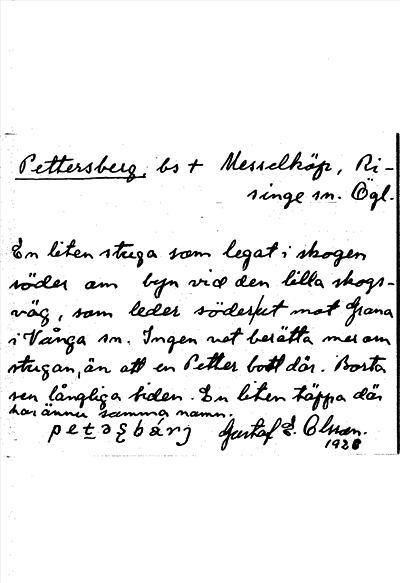 Pettersberg, bs + Messelköp, Ri-
singe sn. Ögl.
En liten stuga som legat i skogen
söder om byn vid den lilla skogs-
väg, som leder söderut mot Grana
i Vånga sn. Ingen vet berätta mer om
stugan, än att en Petter bott där. Borta
sen långliga tiden. En liten täppa där
har ännu samma namn.
Gustaf E. Olsson.
1928